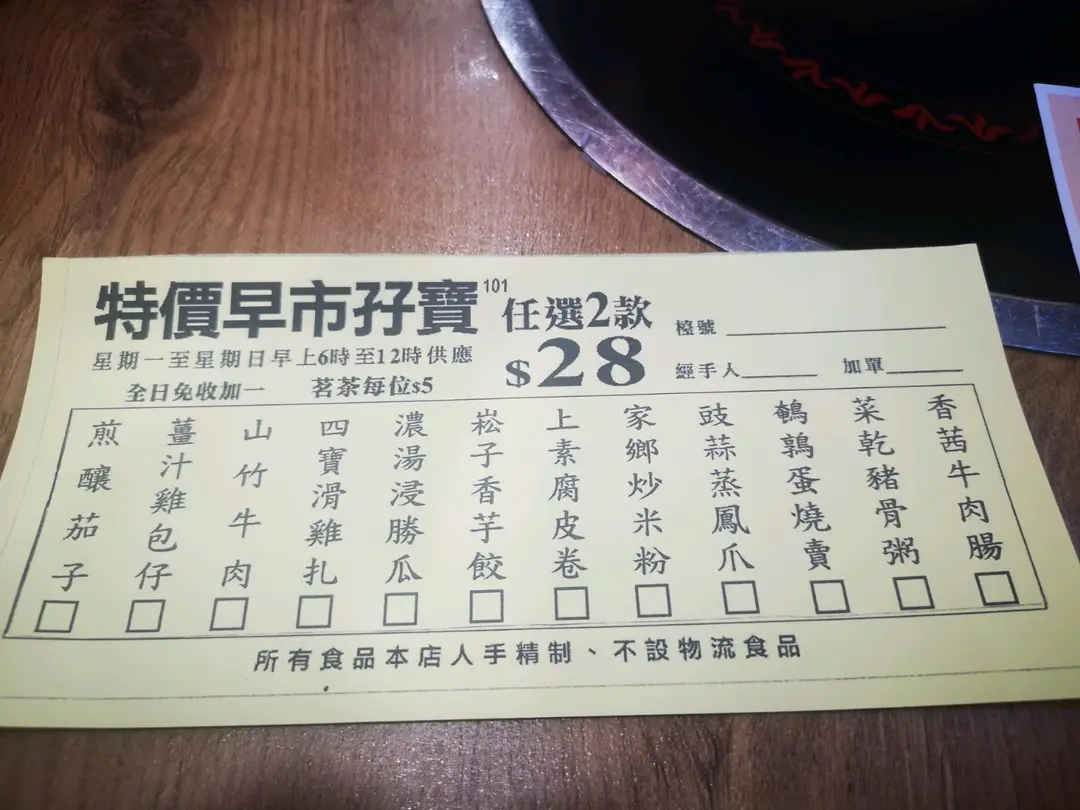 特價早市孖寶101 任選2款
$28
星期一至星期日早上6時至12時供應
全日免收加一 茗茶每位$5
檯號
經手人 加單
香茜牛肉腸
菜乾豬骨粥
鵪鶉蛋燒賣
豉蒜蒸鳳爪
家鄉炒米粉
上素腐皮卷
崧子香芋餃
濃湯浸勝瓜
四寶滑雞扎
山竹牛肉
薑汁雞包仔
煎釀茄子
所有食品本店人手精制、不設物流食品